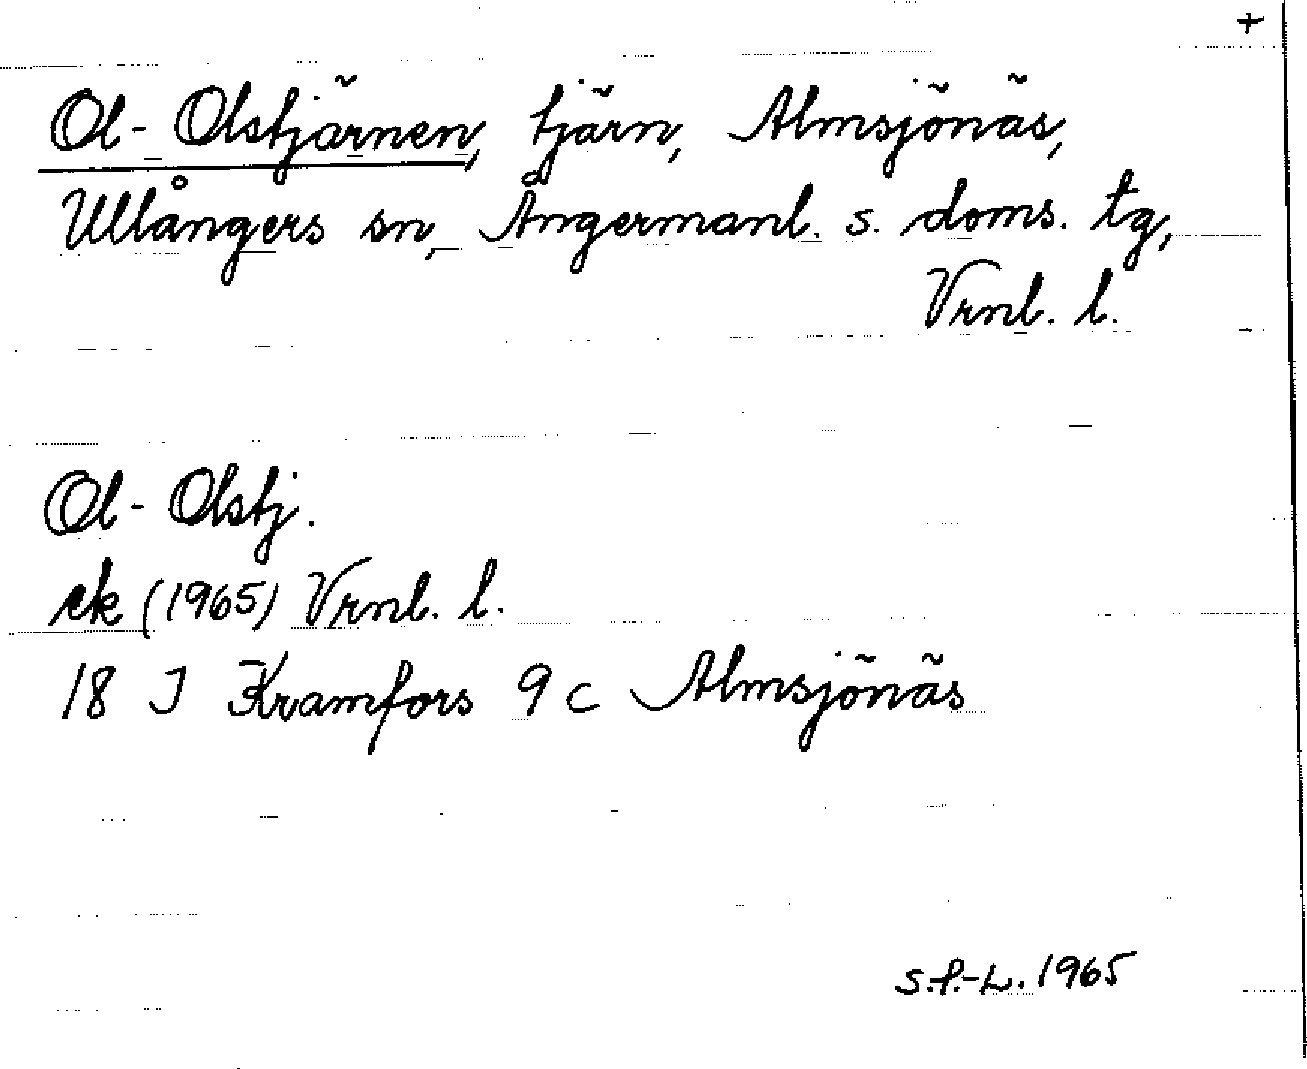 +
Ol-Olstjärnen, tjärn, Almsjönäs,
Ullångers sn, Ångermanl. s. doms. tg,
Vrnl. l.
Ol-Olstj.
ek (1965) Vrnl. l.
18 J Kramfors 9 c Almsjönäs
S.f.-L. 1965